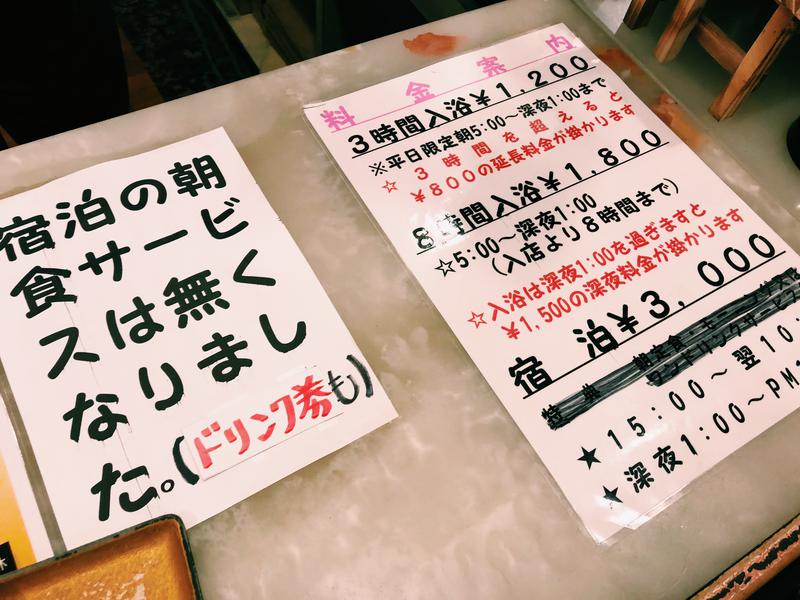 宿泊の朝
食サービ
スは無く
なりまし
た。(ドリンク券も)
料金案内
3時間入浴¥1,200
※平日限定朝5:00~深夜1:00まで
☆3時間を超えると
¥800の延長料金が掛かります
8時間入浴¥1,800
☆5:00~深夜1:00
(入店より8時間まで)
☆入浴は深夜1:00を過ぎますと
¥1,500の深夜料金が掛かります
宿泊¥3,000
特典 朝定食
ワンドリンクサービス
★15:00~翌10:
★深夜1:00~PM